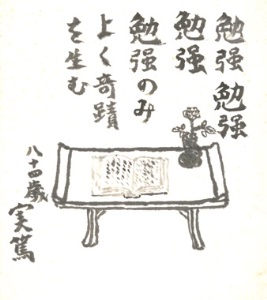 勉强勉强
勉强
勉强のみ
よく奇蹟
を生む
八十四歳
実篤